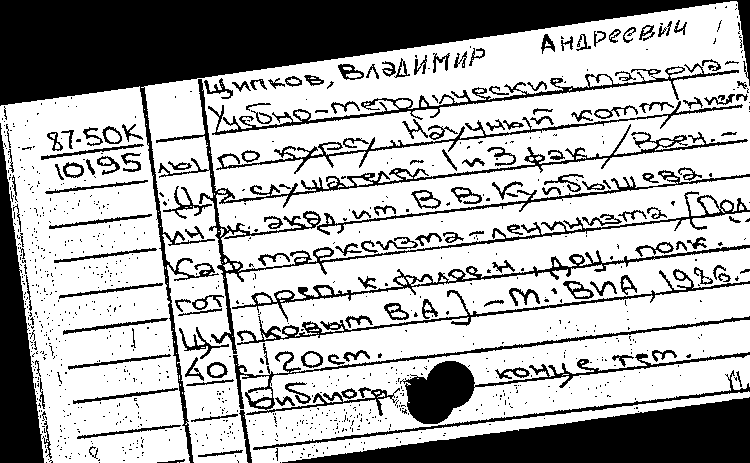 Щипков, Владимир Андреевич
Учебно-методические материа-
87-50К
лы по курсу „Научный коммунизм"
10195
: Для слушателей 1 и 3 фак. / Воен.-
инж. акад. им. В.В. Куйбышева.
Каф. марксизма-ленинизма; [Под-
гот. преп., к. филос. н., доц., полк.
Щипковым В.А.]. – М.: ВИА, 1986.–
40 с.; 20 см.
Библиогр. конце тем.